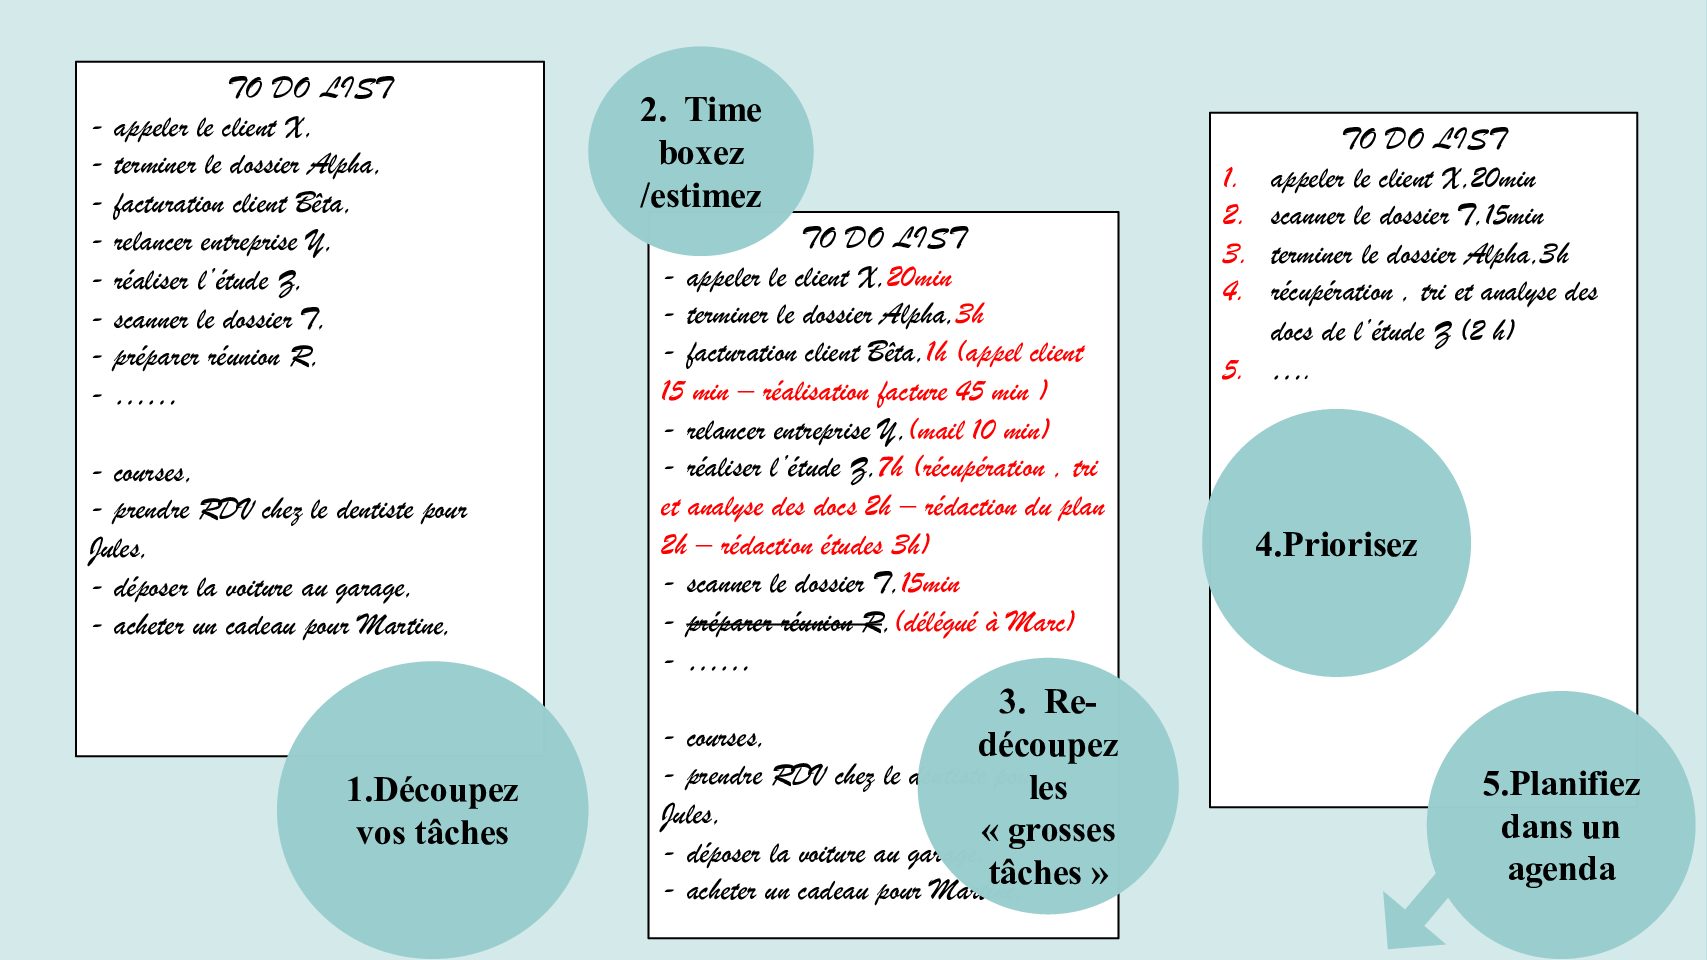 TO DO LIST
- appeler le client X,
- terminer le dossier Alpha,
- facturation client Bêta,
- relancer entreprise Y,
- réaliser l'étude Z,
- scanner le dossier T,
- préparer réunion R,
- ......
- courses,
- prendre RDV chez le dentiste pour
Jules,
- déposer la voiture au garage,
- acheter un cadeau pour Martine,
1.Découpez
vos tâches
2. Time
boxez
/estimez
TO DO LIST
- appeler le client X,20min
- terminer le dossier Alpha,3h
- facturation client Bêta,1h (appel client
15 min – réalisation facture 45 min )
- relancer entreprise Y,(mail 10 min)
- réaliser l'étude Z,7h (récupération , tri
et analyse des docs 2h – rédaction du plan
2h – rédaction études 3h)
- scanner le dossier T,15min
- préparer réunion R,(délégué à Marc)
- ......
- courses,
- prendre RDV chez le dentiste
Jules,
- déposer la voiture au garage
- acheter un cadeau pour
3. Re-
découpez
les
« grosses
tâches »
TO DO LIST
1. appeler le client X,20min
2. scanner le dossier T,15min
3. terminer le dossier Alpha,3h
4. récupération , tri et analyse des
docs de l'étude Z (2 h)
5. ....
4.Priorisez
5.Planifiez
dans un
agenda